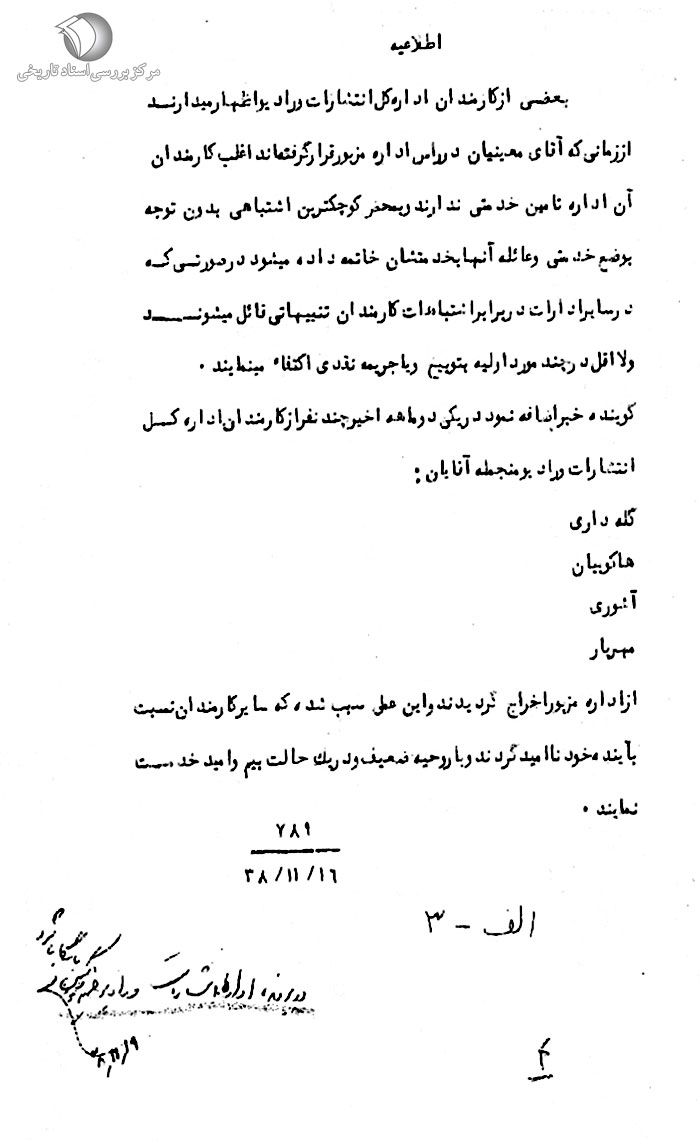 مرکز بررسی اسناد تاریخی
اطلاعیه
بعضی از کارمندان اداره کل انتشارات و رادیو اظهار میدارند
از زمانی که آقای معینیان در راس اداره مزبور قرار گرفته‌اند اغلب کارمندان
آن اداره تامین خدمتی ندارند و بمحض کوچکترین اشتباهی بدون توجه
بوضع خدمتی و عائله آنها بخدمتشان خاتمه داده میشود در صورتی که
در سایر ادارات در برابر اشتباهات کارمندان تنبیهاتی قائل میشوند
ولااقل در چند مورد اولیه بتوبیخ و یا جریمه نقدی اکتفاء مینمایند ۰
گوینده خبر اضافه نمود در یکی دو ماهه اخیر چند نفر از کارمندان اداره کل
انتشارات و رادیو منجمله آقایان :
گله داری
هاکوپیان
آشوری
مهریار
از اداره مزبور اخراج گردیدند و این عمل سبب شده که سایر کارمندان نسبت
بآینده خود ناامید گردند و با روحیه ضعیف و در یک حالت بیم و امید خدمت
نمایند ۰
۷۸۹
۳۸/۱۱/۱۶
الف - ۳
در پرونده اداره انتشارات و رادیو
۳۸/۱۱/۱۹
۴